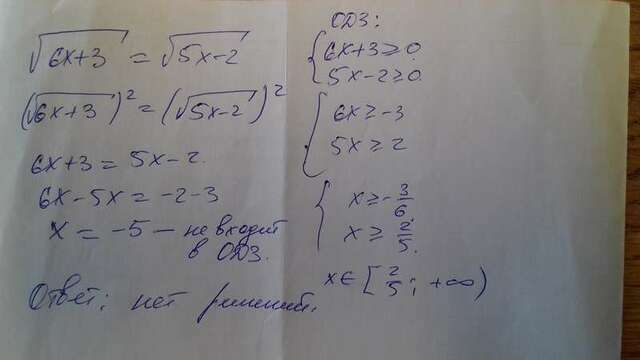 √6x+3 = √5x-2
(√6x+3)² = (√5x-2)²
6x+3 = 5x-2
6x-5x = -2-3
x = -5 — не входит
в ОДЗ.
Ответ: нет решений.
ОДЗ:
{6x+3≥0
5x-2≥0
{6x≥-3
5x≥2
{x≥-3/6
x≥2/5.
x∈[2/5; +∞)